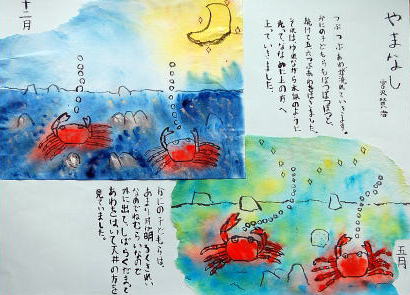 やまなし
宮沢賢治
つぶつぶあわが流れていきます。
かにの子どもらもぽつぽつぽつと、
続けて五六つぶあわをはきました。
それはゆれながら水銀のように
光って、ななめに上の方へ
上っていきました。
十二月
かにの子どもらは、
あまり月が明るく水がきれい
なのでねむらないで
外に出て、しばらくだまって
あわをはいて天井の方を
見ていました。
五月